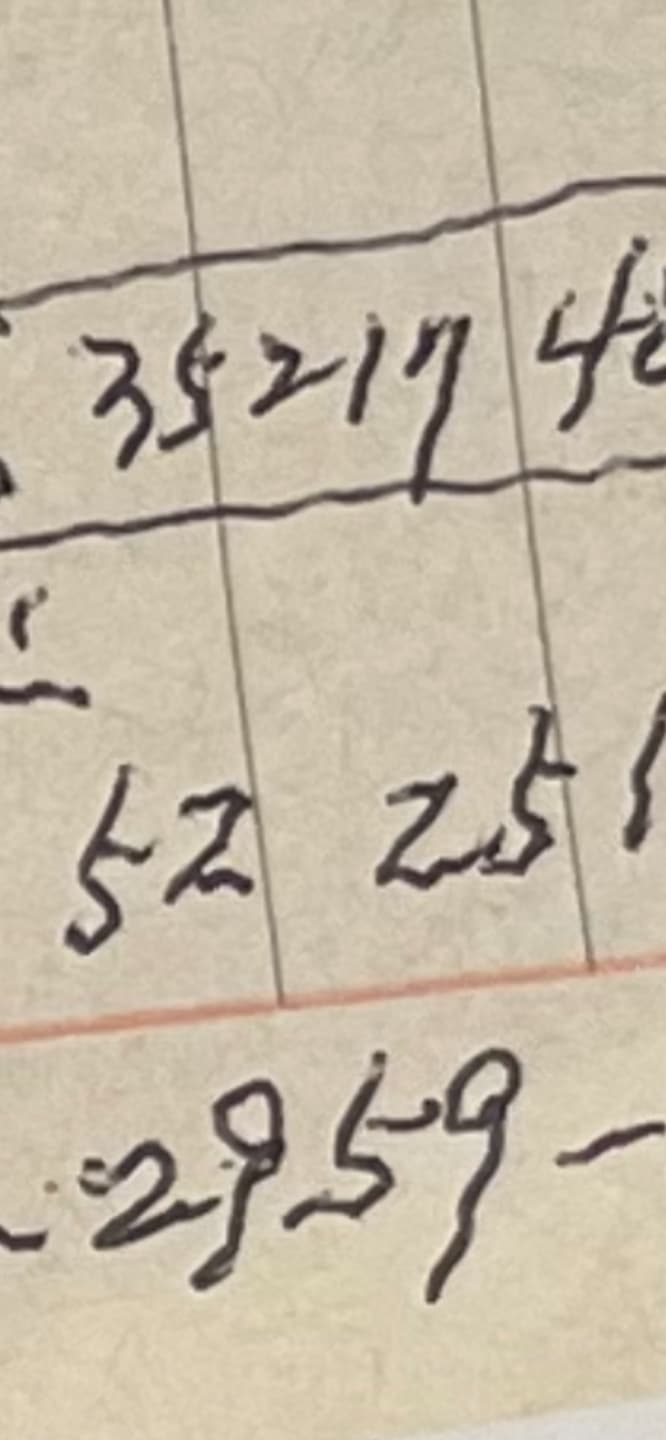 35217 4
52 251
2959 –